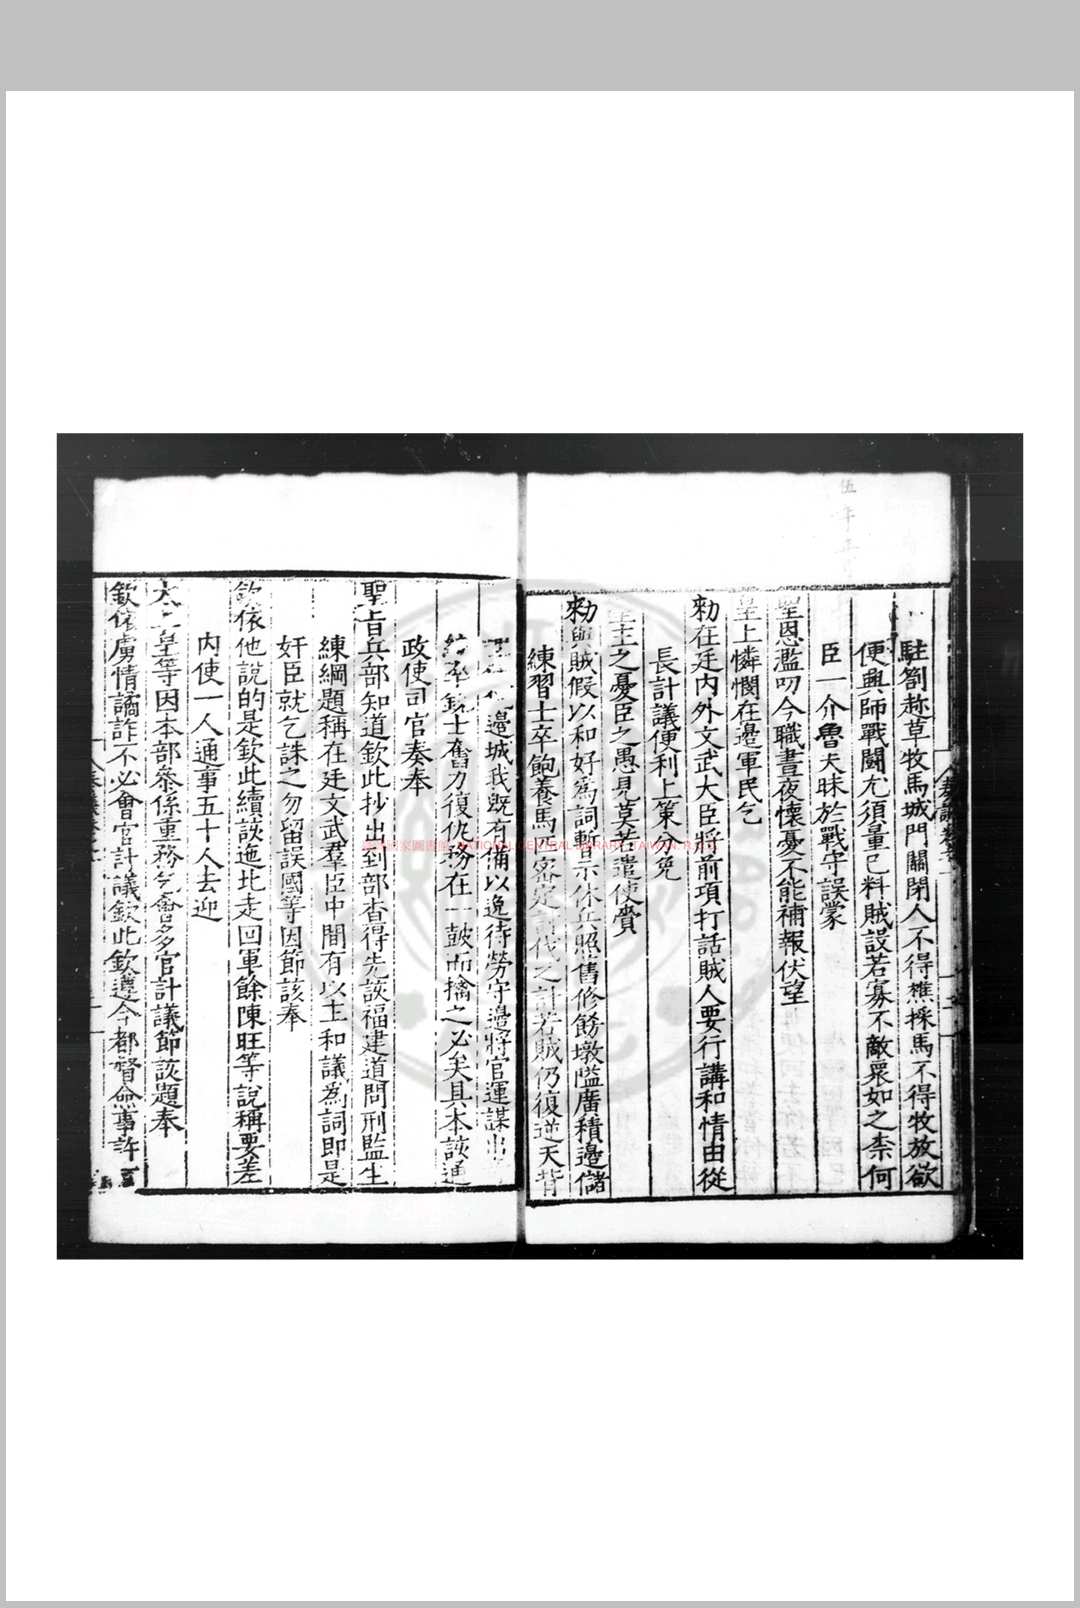 駐劄趂草牧馬城門關閉人不得樵採馬不得牧放欲
便興師戰鬪尤須量已料賊設若寡不敵衆如之柰何
臣一介魯夫昧於戰守誤蒙
聖恩濫叨今職晝夜懷憂不能補報伏望
皇上憐憫在邊軍民乞
勑在廷内外文武大臣將前項打話賊人要行講和情由從
長計議便利上策分免
聖主之憂臣之愚見莫若遣使賫
勑與賊假以和好爲詞暫示休兵照舊修餝墩隘廣積邊儲
練習士卒飽養馬匹密定計伐之計若賊仍復逆天背
邊城我既有備以逸待勞守邊將官運謀出
士奮力復仇務在一鼓而擒之必矣具本該通
政使司官奏奉
聖旨兵部知道欽此抄出到部查得先該福建道問刑監生
練綱題稱在廷文武羣臣中間有以主和議為詞即是
奸臣就乞誅之勿留誤國等因節該奉
欽依他說的是欽此續該迤北走回軍餘陳旺等說稱要差
内使一人通事五十人去迎
太上皇等因本部叅係重務乞會多官計議節該題奉
欽依虜情譎詐不必會官計議欽此欽遵今都督僉事許
國家圖書館 NATIONAL CENTRAL LIBRARY, TAIWAN, R.O.C.